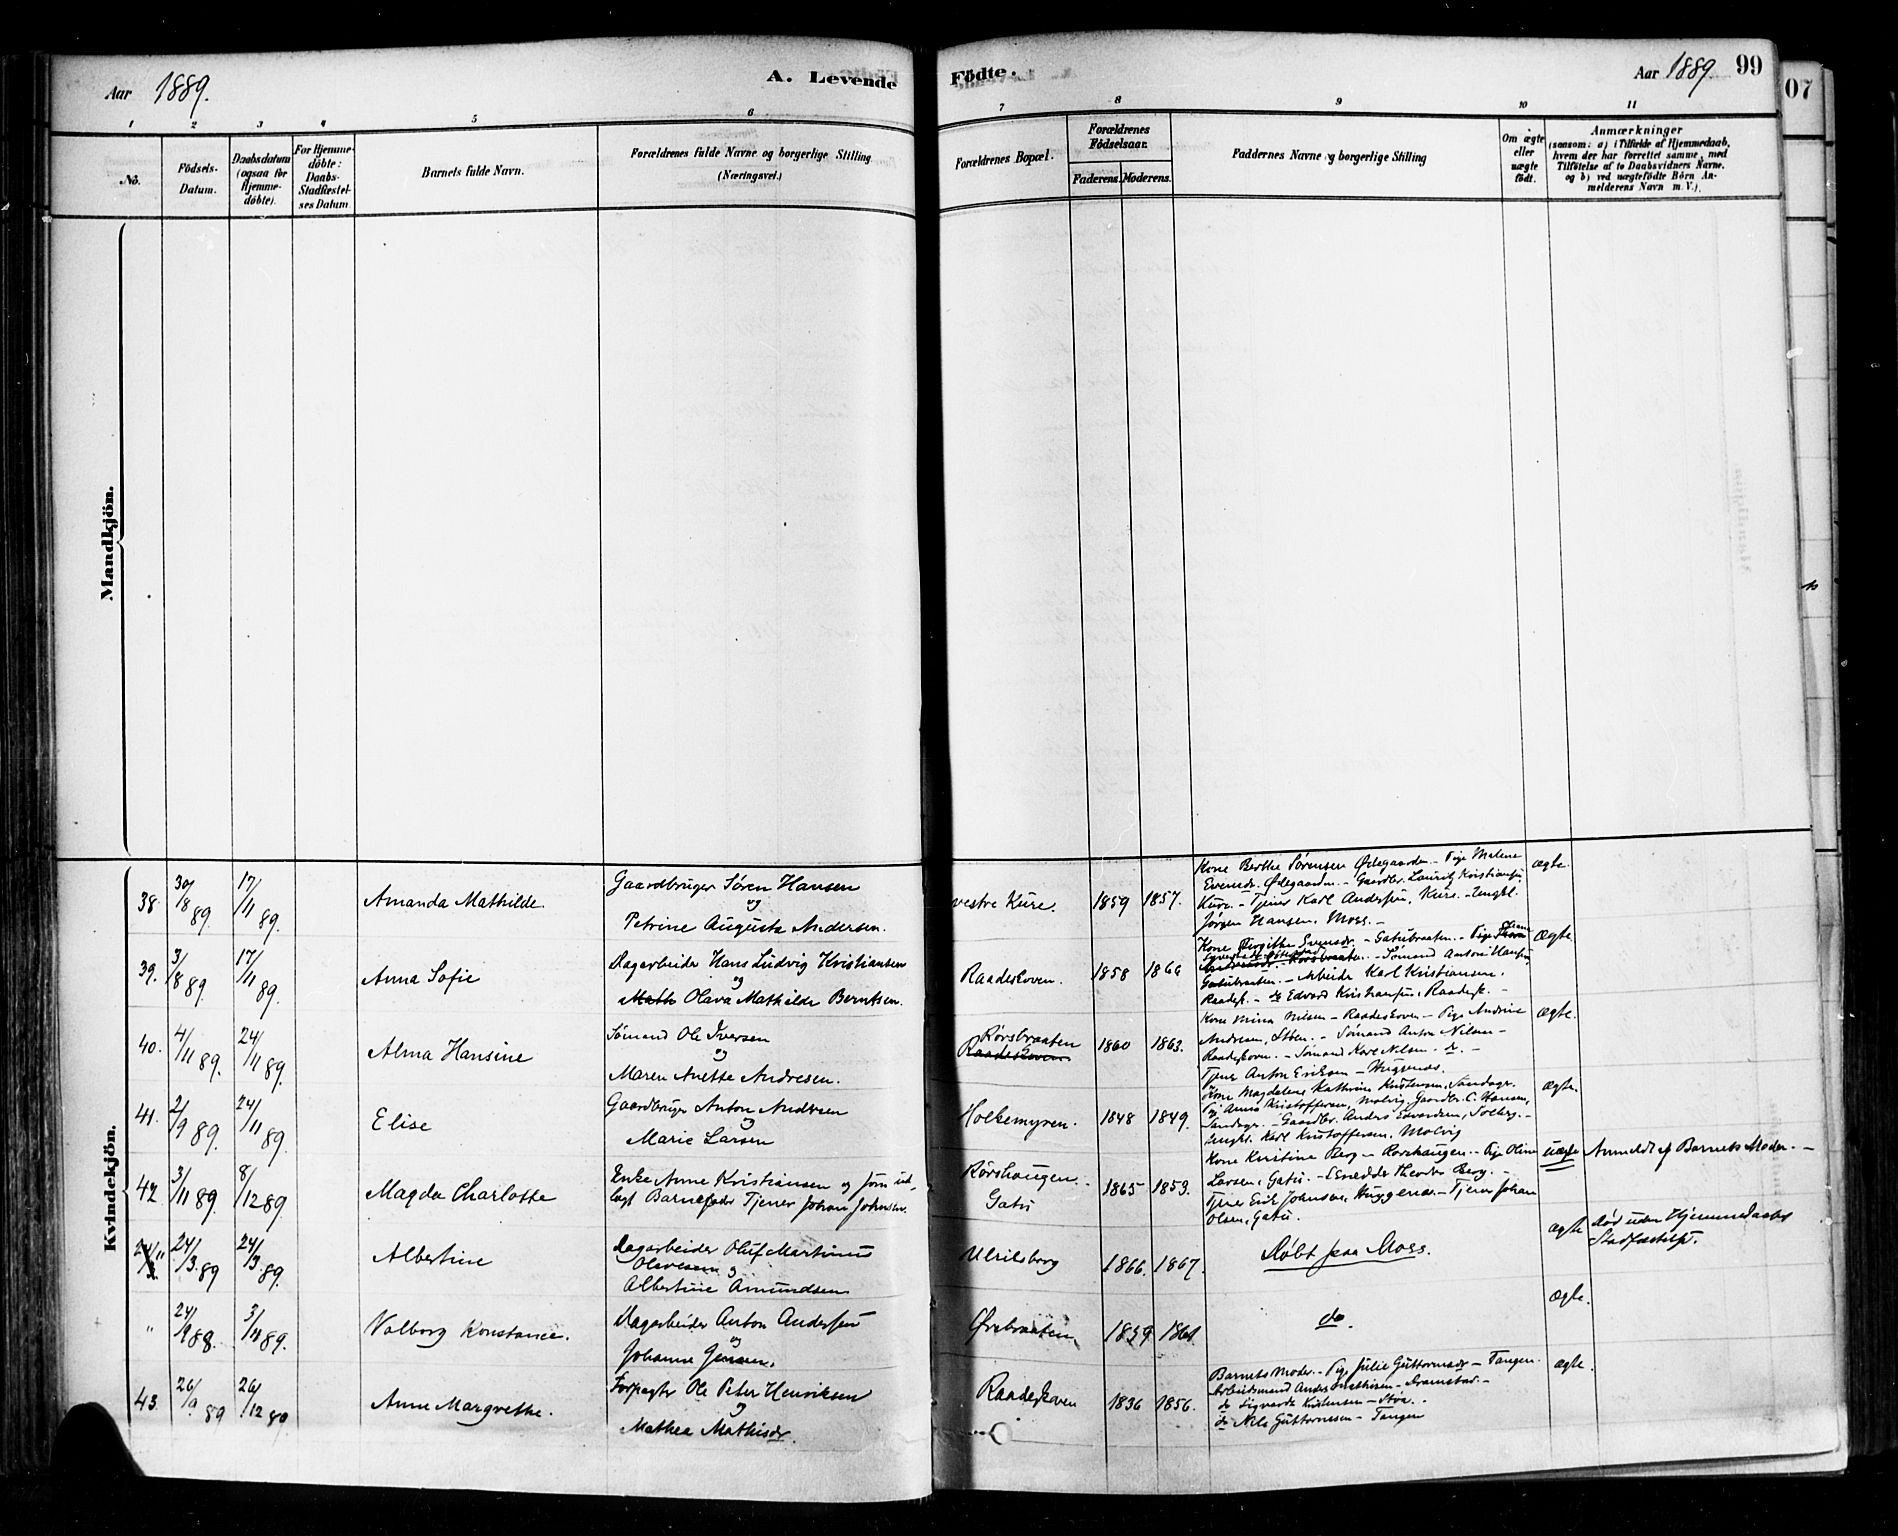 Aar 1889.
A. Levende
Födte.
Aar 1889. 99
07
1 2 3 4 5 6 7 8 9 10 11
No.
Födsels-
Datum.
Daabsdatum
(ogsaa for
Hjemme-
döbte).
For Hjemme-
döbte:
Daabs-
Stadfæstel-
ses Datum
Barnets fulde Navn.
Forældrenes fulde Navne og borgerlige Stilling
(Næringsvei.)
Forældrenes Bopæl.
Forældrenes
Födselsaar.
Faderens. Moderens.
Faddernes Navne og borgerlige Stilling
Om ægte
eller
uægte
födt.
Anmærkninger
(saasom: a) i Tilfælde af Hjemmedaab,
hvem der har forrettet samme, med
Tilföielse af to Daabsvidners Navne.
og b) ved uægtefödte Börn An-
melderens Navn m. V.).
Mandkjön.
Kvindekjön.
38. 30/8 89. 17/11 89.
Amanda Mathilde.
Gaardbruger Søren Hansen
og
Petrine Augusta Andersen.
vestre Kure. 1859 1857.
Kone Berthe Sørensen Ødegaarden - Pige Malene
Evensdr. Ødegaarden. - Gaardbr. Lauritz Kristiansen
Kure. - Tjener Karl Andersen, Kure. - Ungkl.
Jørgen Hansen, Moss. -
ægte.
39. 3/8 89. 17/11 89.
Anna Sofie
Dagarbeider Hans Ludvig Kristiansen
og
Math Olava Mathilde Berntsen.
Raadeskoven. 1858 1866
Kone Birgithe Evensdr. - Gatubraaten. - Pige
- Rørsbraaten. - Sømand Anton Hansen,
Gatubraaten. - Arbeider Karl Kristiansen.
Raadesk. - do Edvard Kristiansen, Raadesk. -
Ægte.
40. 4/11 89. 24/11 89.
Alma Hansine
Sømand Ole Iversen
og
Maren Anette Andresen.
Rørsbraaten
Raadeskoven 1860 1863.
Kone Mina Nilsen - Raadeskoven - Pige Andrine
Andresen, Sten. - Sømand Anton Nilsen -
Raadeskoven. - Sømand Karl Nilsen. do. -
Tjener Anton Eriksen - Huggenæs.
ægte.
41. 2/9 89. 24/11 89.
Elise
Gaardbruger Anton Andersen
og
Marie Larsen
Holkemyren. 1848 1849.
Kone Magdalene Kathrine Kristensen, Sandager.
Pige Anna Kristoffersen, Molvig. Gaardbr. C. Hansen,
Sandager. - Gaardbr. Anders Edvardsen, Solberg. -
Ungkl. Karl Kristoffersen, Molvig
ægte.
42. 3/11 89. 8/12 89.
Magda Charlotte
Enke Anne Kristiansen og som ud-
lagt Barnefader Tjener Johan Johnsen.
Rørshaugen.
Gatu 1865 1853.
Kone Kristine Berg - Rørshaugen. - Pige Oline
Larsen, Gatu. - Theodor Berg. -
Tjener Emil Johansen, Huggenæs - Tjener Johan
Olsen, Gatu.
uægte Anmeldt af Barnets Moder. -
" 24/3 89 24/3 89.
Albertine
Dagarbeider Oluf Martinus
Olavesen og
Albertine Amundsen
Ulriksborg 1866. 1867.
Døbt paa Moss.
ægte Død uden Hjemmedaabs
Stadfæstelse.
" 24/9 88. 3/11 89.
Valborg Konstance.
Dagarbeider Anton Andersen
og
Johanne Jensen.
Ørebraaten. 1859 1861.
do.
Ægte.
43. 26/9 89 26/12 89.
Anne Margrethe.
Forpagter Ole Peter Henriksen
og
Mathea Mathisdr.
Raadeskoven 1836 1856.
Barnets Moder. - Pige Julie Guttormsdr - Tangen.
Arbeidsmand Anders Mathisen - Dramstad. -
do Sigvardt Kristensen - Støa. -
do Nils Guttormsen - Tangen
ægte.